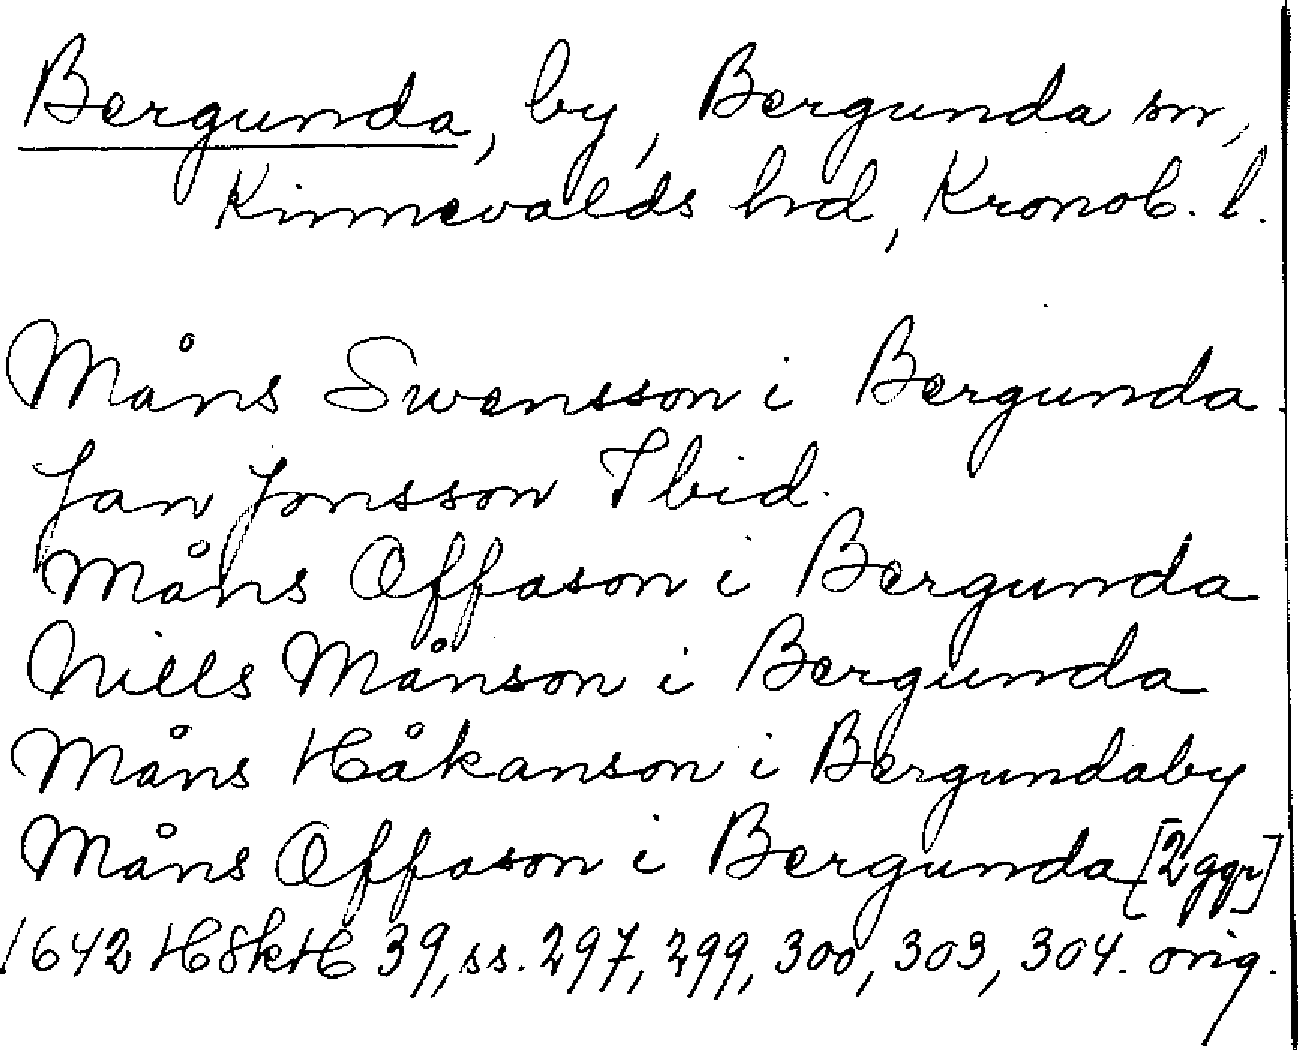 Bergunda, by, Bergunda sn,
Kinnevalds hrd, Kronob. l.
Måns Swensson i Bergunda.
Jan Jonsson Ibid.
Måns Offason i Bergunda
Nills Månson i Bergunda
Måns Håkanson i Bergundaby
Måns Offason i Bergunda [2 ggr]
1642 H8kH 39, ss. 297, 299, 300, 303, 304. orig.